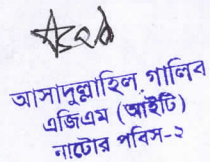 আসাদুল্লাহিল গালিব
এজিএম (আইটি)
নাটোর পবিস-২